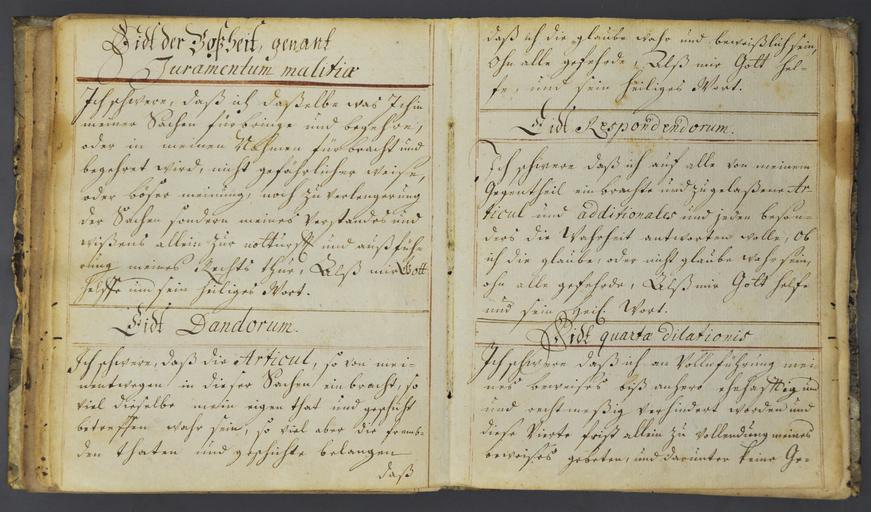 Eidt der Boßheit, genant
Juramentum malitiæ
Ich schwere, daß ich daßelbe was Ich in
meiner Sachen fürbringe und begehre,
oder in meinen Nahmen fürbracht und
begehret wird, nicht gefährlicher weise,
oder böser meinung, noch zu verlengerung
der Sachen sondern meines Verstandes und
wißens allein zur notturfft und außfüh-
rung meines Rechts thue, Alß mir Gott
helffe und sein heiliges Wort.
Eidt Dandorum.
Ich schwere, daß die Articul, so von mei-
nentwegen in dieser Sachen einbracht, so
viel dieselbe mein eigen that und geschicht
betreffen wahr sein, so viel aber die fremb-
den thaten und geschichte belangen
daß
daß ich die glaube wahr und beweißlich sein,
Ohn alle gefehrde, Alß mir Gott hel-
fe, und sein heiliges Wort.
Eidt Respondendorum.
Ich schwere daß ich auf alle von meinem
Gegentheil einbrachte und zugelaßene Ar-
ticul und additionales und jeden beson-
ders die Wahrheit antworten wolle, Ob
ich die glaube, oder nicht glaube wahr sein,
ohn alle gefehrde, Alß mir Gott helfe
und sein heil. Wort.
Eidt quartæ dilationis
Ich schwere daß ich an Vollnführung mei
nes beweises biß anhero ehehafftig und
und rechtmeßig verhindert worden und
diese Vierte frist allein zu vollendung meines
beweises gebeten, und darunter keine Ge-